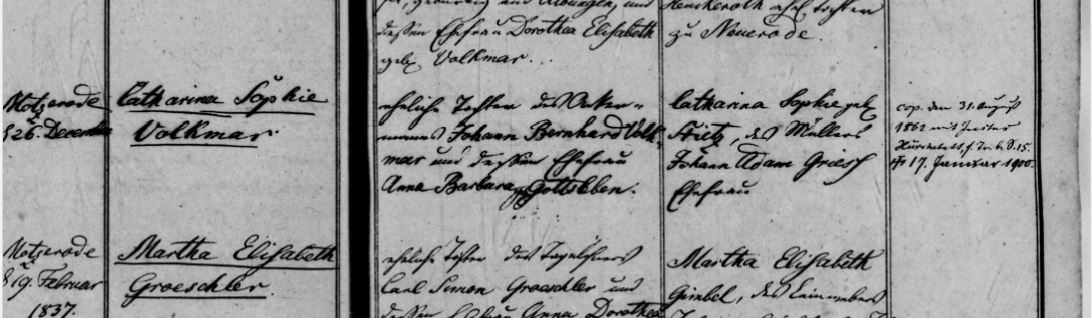 dessen Ehefrau Dorothea Elisabeth
geb. Volkmar.
zu Neuerode.
Motzerode
d 26. December
Catharina Sophie
Volkmar.
eheliche Tochter des Acker-
manns Johann Bernhard Volk-
mar und dessen Ehefrau
Anna Barbara geb. Gottsleben.
Catharina Sophie geb.
Frietz, des Müllers
Johann Adam
Ehefrau
cop. den 31. August
1862 mit
17. Januar 1900.
Motzerode
d 19. Februar
1837.
Martha Elisabeth
Groeschler.
eheliche Tochter des Tagelöhners
Carl Simon Groeschler und
dessen Ehefrau Anna Dorothea
Martha Elisabeth
Gimbel, des Leinwebers